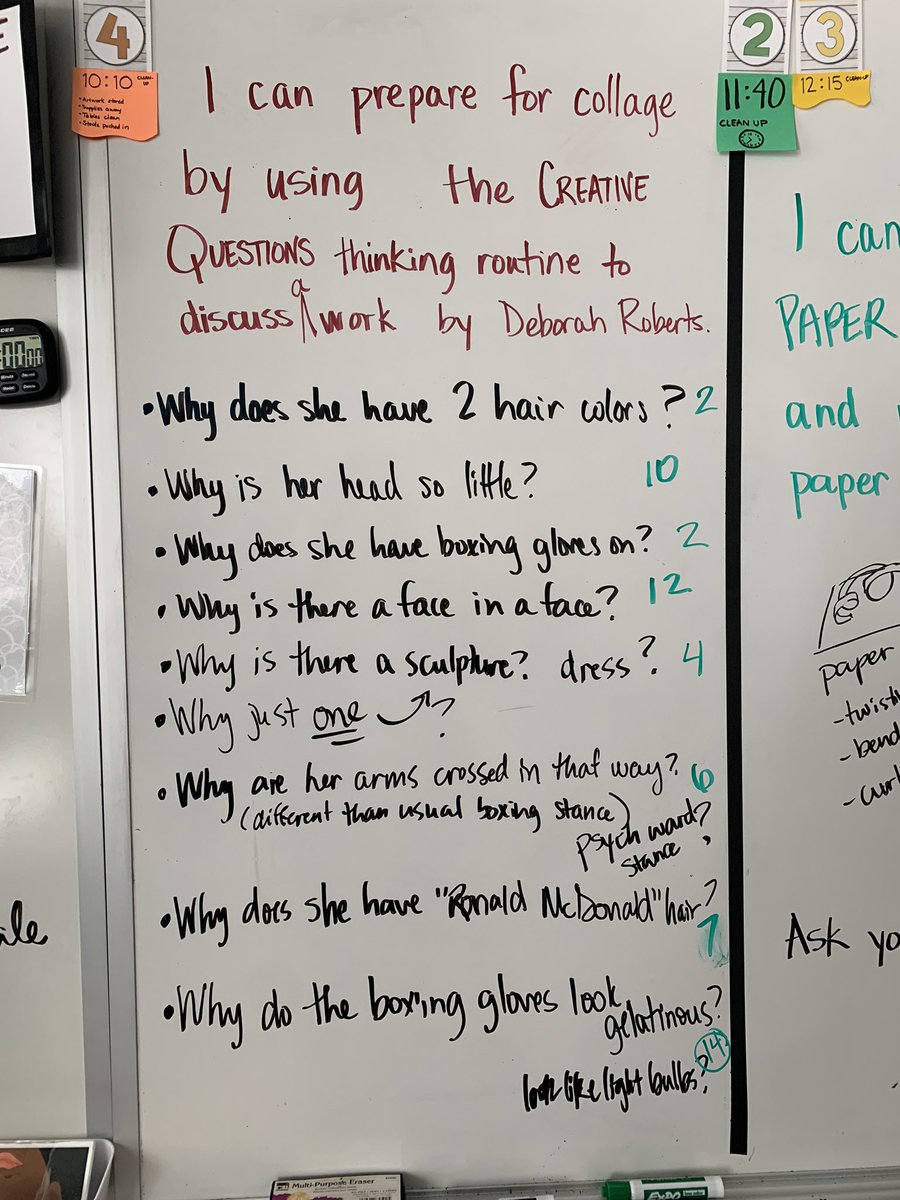 4
10:10 CLEAN-UP
• Artwork stored
• Supplies away
• Tables clean
• Stools pushed in
2
11:40
CLEAN UP
3
12:15 CLEAN UP
I can prepare for collage
by using the CREATIVE
QUESTIONS thinking routine to
discuss a work by Deborah Roberts.
• Why does she have 2 hair colors? 2
• Why is her head so little? 10
• Why does she have boxing gloves on? 2
• Why is there a face in a face? 12
• Why is there a sculpture? dress? 4
• Why just one ?
• Why are her arms crossed in that way? 6
(different than usual boxing stance)
psych ward?
stance
• Why does she have "Ronald McDonald" hair?
7
• Why do the boxing gloves look
gelatinous?
14
look like light bulbs?
I can
PAPER
and
paper
paper
- twist
- bend
- curl
Ask yo
ale
00:00
Multi-Purpose Eraser
EXPO